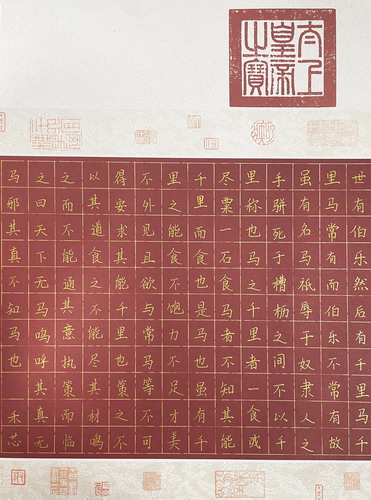 太上
皇帝
之寶
世有伯乐然后有千里马千
里马常有而伯乐不常有故
虽有名马祇辱于奴隶人之
手骈死于槽枥之间不以千
里称也马之千里者一食或
尽粟一石食马者不知其能
千里而食也是马也虽有千
里之能食不饱力不足才美
不外见且欲与常马等不可
得安求其能千里也策之不
以其道食之不能尽其材鸣
之而不能通其意执策而临
之曰天下无马呜呼其真无
马邪其真不知马也 禾芯